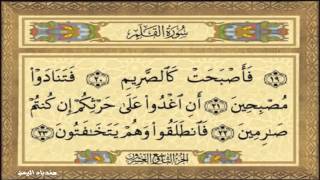 سُورَةُ الْقَلَمِ
﴿١٩﴾ فَأَصْبَحَتْ كَالصَّرِيمِ ﴿٢٠﴾ فَتَنَادَوْا
مُصْبِحِينَ ﴿٢١﴾ أَنِ اغْدُوا عَلَىٰ حَرْثِكُمْ إِن كُنتُمْ
صَارِمِينَ ﴿٢٢﴾ فَانطَلَقُوا وَهُمْ يَتَخَافَتُونَ ﴿٢٣﴾
الجزء التاسع والعشرون